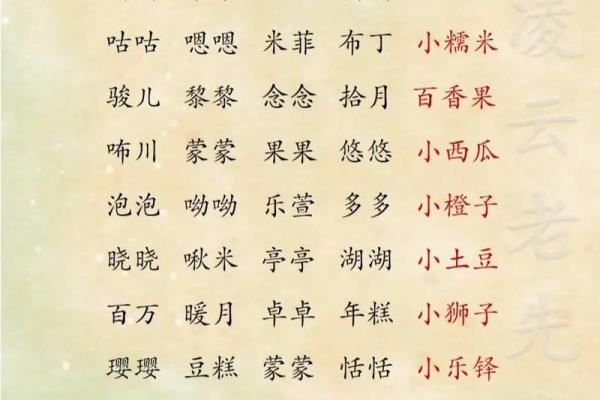 咕咕 嗯嗯 米菲 布丁 小糯米
骏儿 黎黎 念念 拾月 百香果
咘川 蒙蒙 果果 悠悠 小西瓜
泡泡 呦呦 乐萱 多多 小橙子
晓晓 啾米 亭亭 湖湖 小土豆
百万 暖月 卓卓 年糕 小狮子
璎璎 豆糕 蒙蒙 恬恬 小乐铎
凌云老先